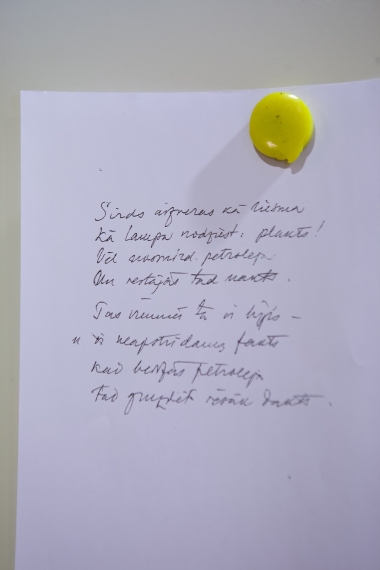 Sirds aizveras kā liesma
kā lampa nodziest, plakts!
Vēl petroleja
Un tad nakts.
Tas vienmēr tā ir bijis –
un ir neapstrīdams fakts
kad beidzas petroleja
tad gruzdēt sāk dakts.